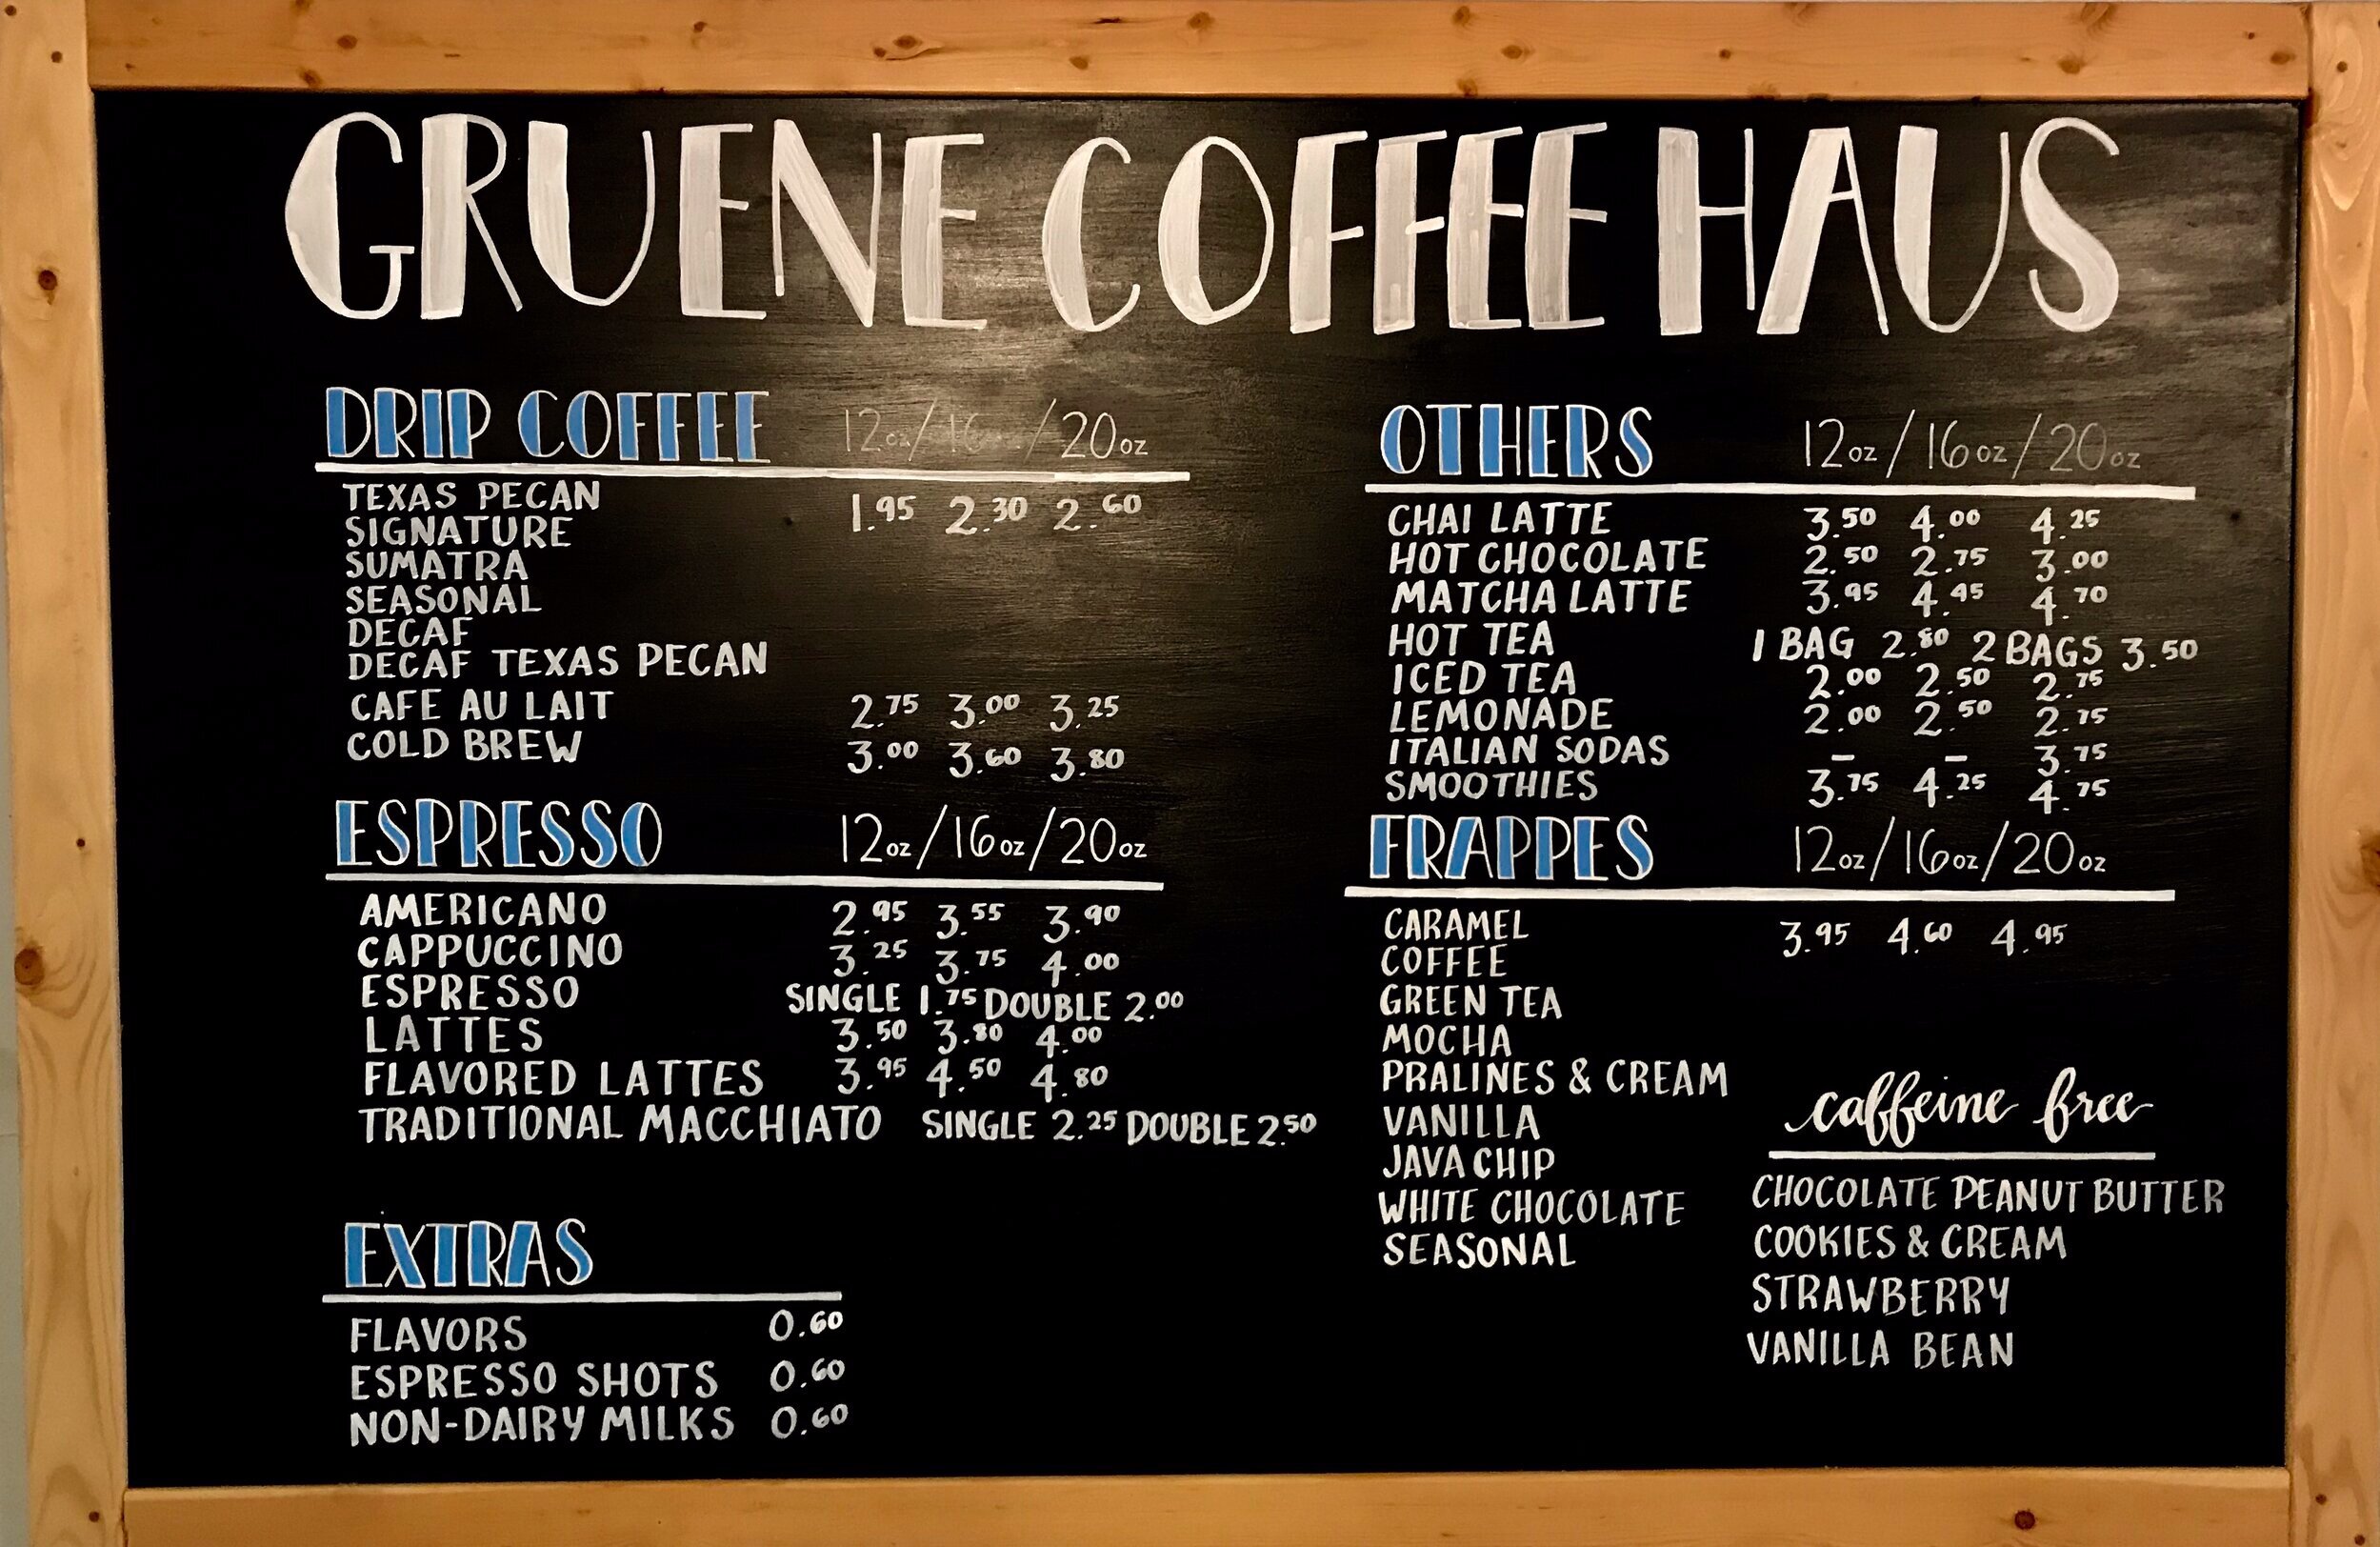 GRUENE COFFEE HAUS
DRIP COFFEE 12oz/16oz/20oz
TEXAS PECAN 1.95 2.30 2.60
SIGNATURE
SUMATRA
SEASONAL
DECAF
DECAF TEXAS PECAN
CAFE AU LAIT 2.75 3.00 3.25
COLD BREW 3.00 3.60 3.80
ESPRESSO 12oz/16oz/20oz
AMERICANO 2.95 3.55 3.90
CAPPUCCINO 3.25 3.75 4.00
ESPRESSO SINGLE 1.75 DOUBLE 2.00
LATTES 3.50 3.80 4.00
FLAVORED LATTES 3.95 4.50 4.80
TRADITIONAL MACCHIATO SINGLE 2.25 DOUBLE 2.50
EXTRAS
FLAVORS 0.60
ESPRESSO SHOTS 0.60
NON-DAIRY MILKS 0.60
OTHERS 12oz/16oz/20oz
CHAI LATTE 3.50 4.00 4.25
HOT CHOCOLATE 2.50 2.75 3.00
MATCHA LATTE 3.95 4.45 4.70
HOT TEA 1 BAG 2.80 2 BAGS 3.50
ICED TEA 2.00 2.50 2.75
LEMONADE 2.00 2.50 2.75
ITALIAN SODAS - - 3.75
SMOOTHIES 3.75 4.25 4.75
FRAPPES 12oz/16oz/20oz
CARAMEL 3.95 4.60 4.95
COFFEE
GREEN TEA
MOCHA
PRALINES & CREAM
VANILLA
JAVA CHIP
WHITE CHOCOLATE
SEASONAL
caffeine free
CHOCOLATE PEANUT BUTTER
COOKIES & CREAM
STRAWBERRY
VANILLA BEAN